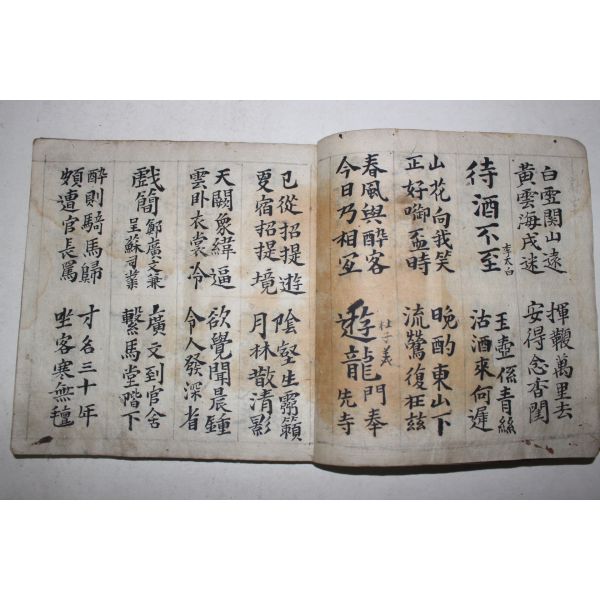 白雪關山遠
黃雲海戍迷
揮鞭萬里去
安得念香閨
待酒不至 李太白
玉壺係青絲
沽酒來何遲
山花向我笑
正好啣盃時
晩酌東山下
流鶯復在玆
春風與醉客
今日乃相宜
遊龍門奉先寺
杜子美
已從招提遊
更宿招提境
陰壑生靈籟
月林散清影
天闕象緯逼
雲卧衣裳冷
欲覺聞晨鍾
令人發深省
戱簡鄭廣文兼呈蘇司業
廣文到官舍
繫馬堂階下
醉則騎馬歸
頗遭官長罵
才名三十年
坐客寒無氊